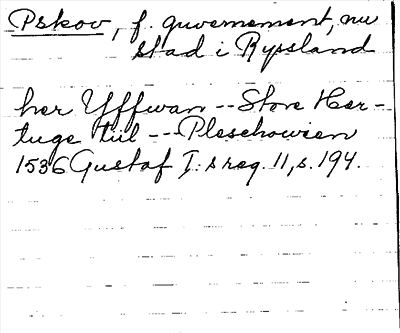 Pskov, f. guvernement, nu
stad i Ryssland
her Yffwan -- Store Her-
tuge till --- Pleschowien
1536 Gustaf I:s reg. 11, s. 194.